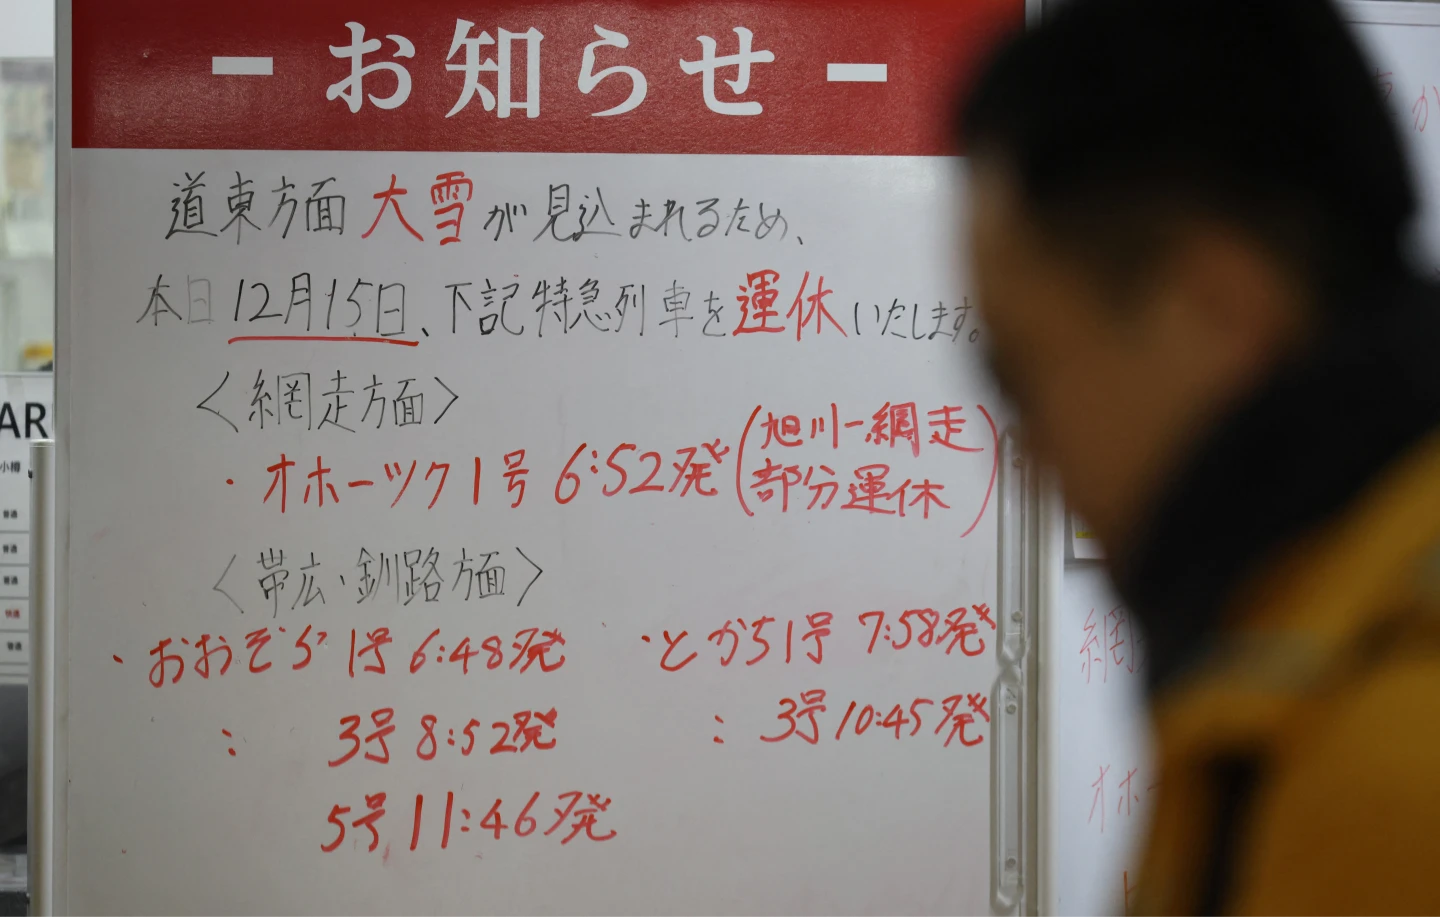 - お知らせ -
道東方面 大雪が見込まれるため、
本日12月15日、下記特急列車を運休いたします。
〈網走方面〉
・オホーツク1号 6:52発(旭川ー網走
部分運休)
〈帯広・釧路方面〉
・おおぞら 1号 6:48発 ・とかち1号 7:58発
： 3号 8:52発 ： 3号 10:45発
5号 11:46発
AR
小樽
普通
普通
普通
快速
普通
か
網
オホー